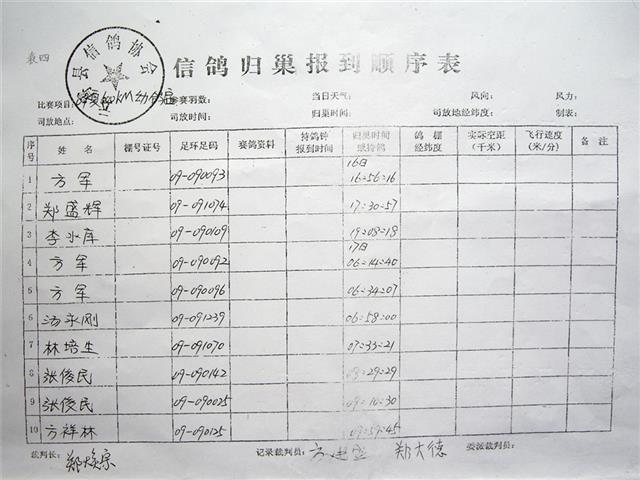 表四
县信鸽协会
信鸽归巢报到顺序表
比赛项目: 参赛羽数: 当日天气: 风向: 风力:
司放地点: 司放时间: 归巢时间: 司放地经纬度: 制表:
序号 姓名 棚号证号 足环足码 赛鸽资料 持鸽钟报到时间 归巢时间 鸽棚经纬度 实际空距(千米) 飞行速度(米/分) 备注
16日
1 方军 09-090093 16:56:16
2 郑盛辉 09-091074 17:30:57
3 李水库 09-090109 19:08:18
17日
4 方军 09-090092 06:14:40
5 方军 09-090096 06:34:07
6 汤永刚 09-091239 06:58:00
7 林培生 09-091070 07:33:21
8 张俊民 09-090142 08:29:29
9 张俊民 09-090025 09:10:30
10 方祥林 09-090125 09:59:45
裁判长: 郑焕宗 记录裁判员: 方建盛 郑大德 委派裁判员: